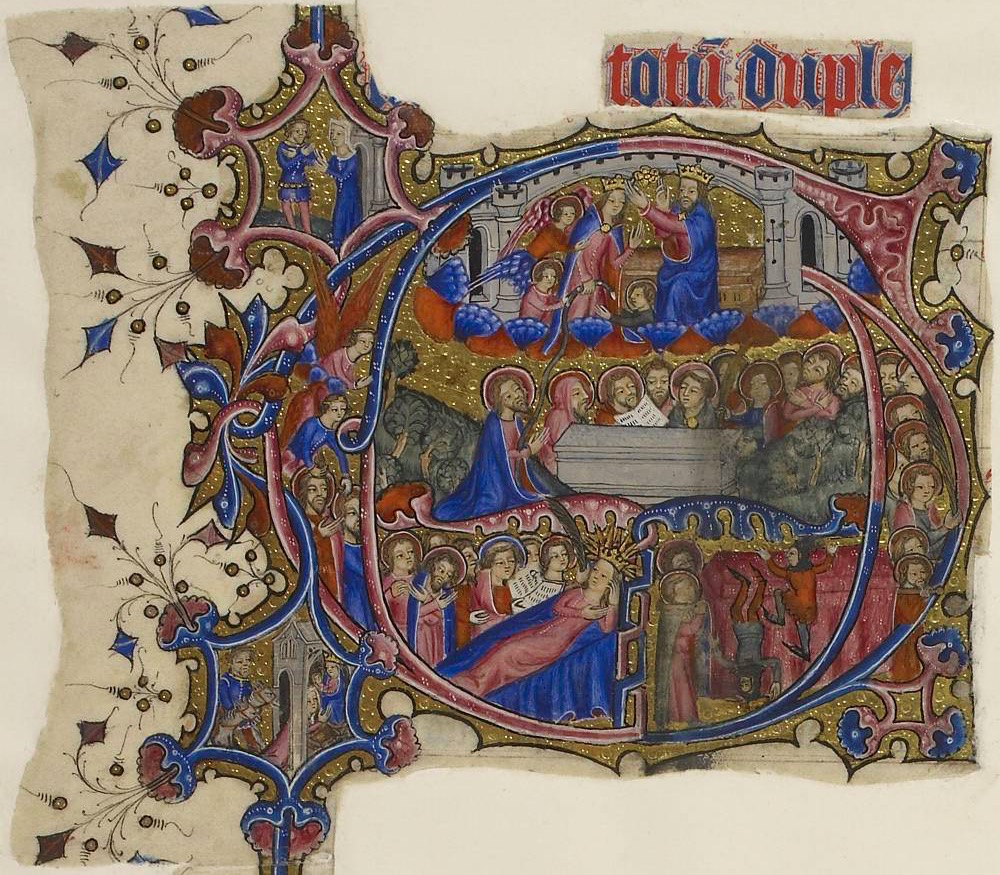 totū duple